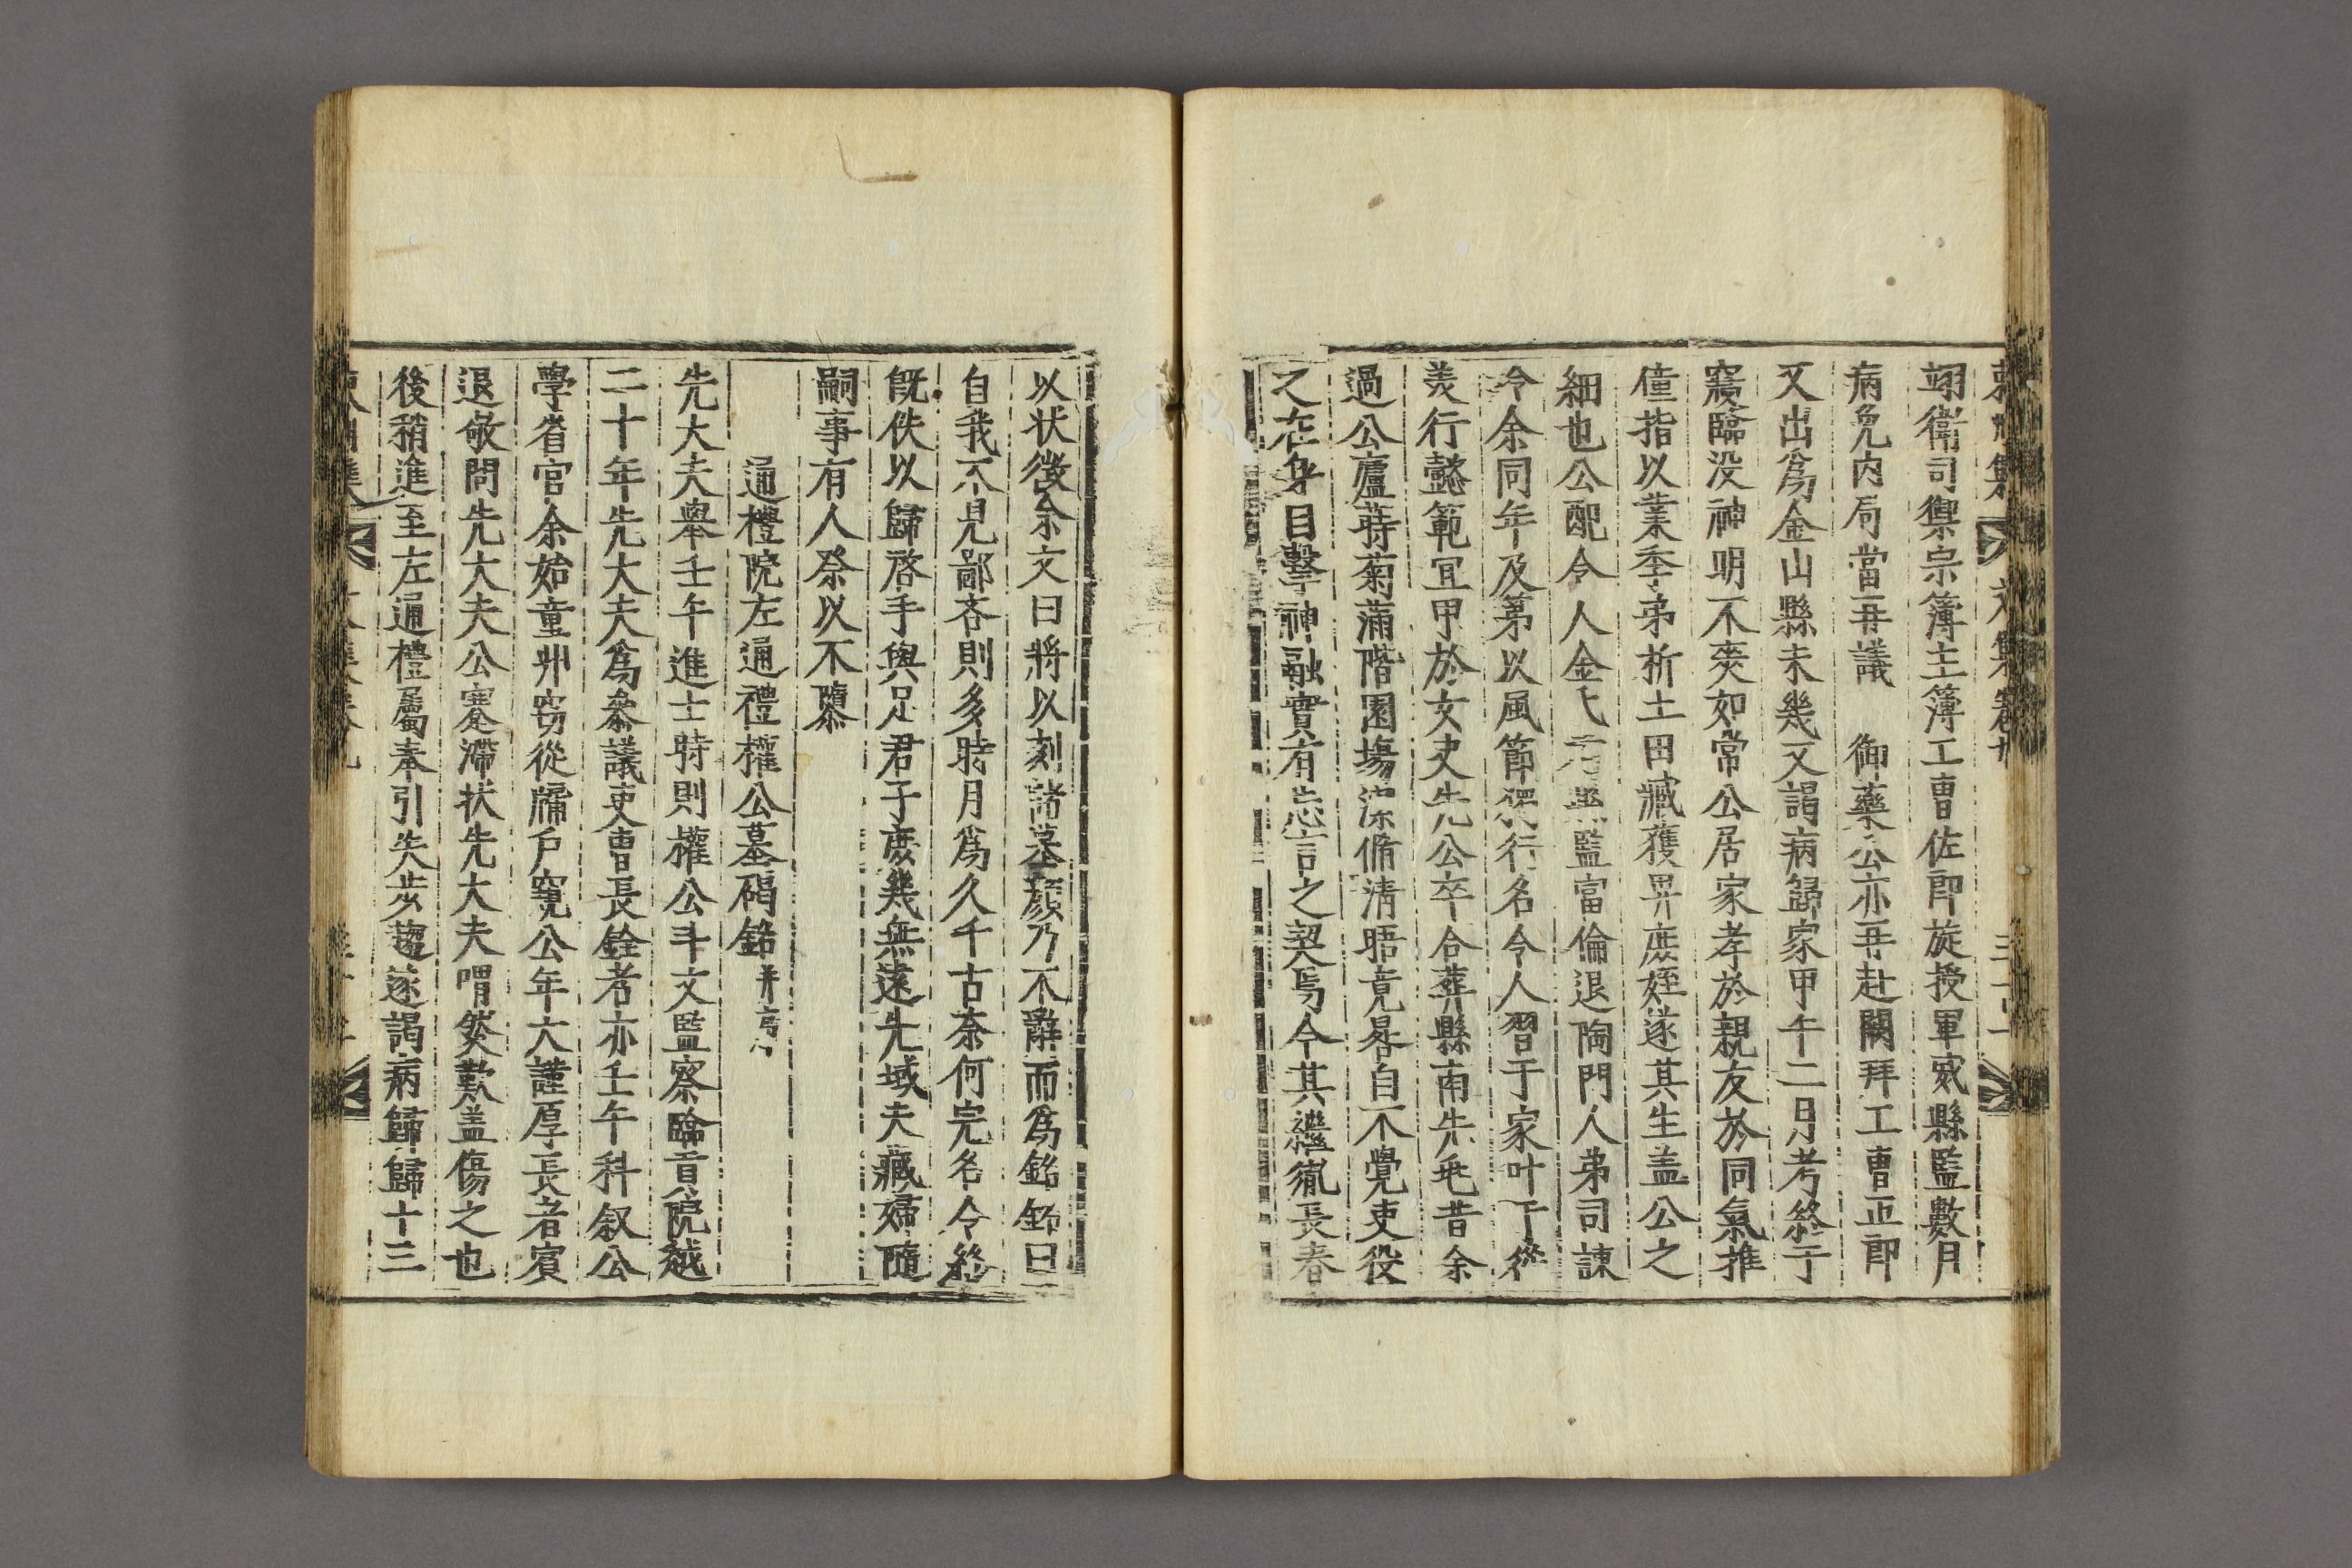 翊衛司禦宗簿主簿工曹佐郎旋授軍威縣監數月
病免內局當再議 御藥公亦再赴闕拜工曹正郎
又出爲金山縣未幾又謁病歸家甲午二月考終于
寢臨没神明不爽如常公居家孝於親友於同氣推
僮指以業季弟析土田臧獲畀庶姪遂其生盖公之
細也公配令人金氏 監富倫退陶門人弟司諫
令余同年及第以風節 行名令人習于家叶于從
羡行懿範宜甲於女史先公卒合葬縣南先毛昔余
過公廬蒔菊蒲階園塲 脩淸晤竟晷自不覺吏役
之在身目擊神融實有忘言之契焉今其繼胤長春
以状徵余文曰將以刻諸墓顏乃不辭而爲銘銘曰
自我不見鄙吝則多時月爲久千古奈何完名令終
旣佚以歸啓手與足君子庶幾無遠先域夫藏婦隨
嗣事有人祭以不隳
通禮院左通禮權公墓碣銘并序
先大夫舉壬午進士時則權公斗文監察臨貢院越
二十年先大夫爲叅議吏曹長銓者亦壬午科叙公
學省官余始童丱窃從牖戶窺公年大謹厚長者賓
退敬問先大夫公蹇滯状先大夫喟然歎盖傷之也
後稍進至左通禮屬奉引失步趨遂謁病歸歸十三